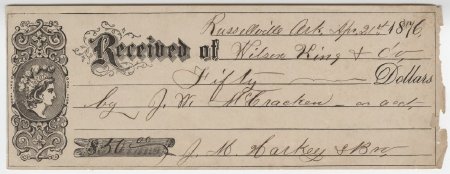 Russellville Ark, Apr 21st 1876,
Received of Wilson King & Co
Fifty Dollars
by J. W. McCracken – on acct,
$50.00 J. M. Harkey & Bro,